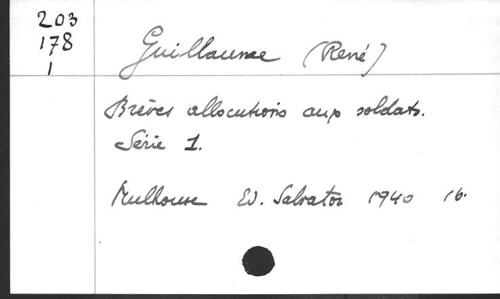 203
178
1
Guillaume (René)
Brèves allocutions aux soldats.
Série 1.
Mulhouse Ed. Salvator 1940 16.